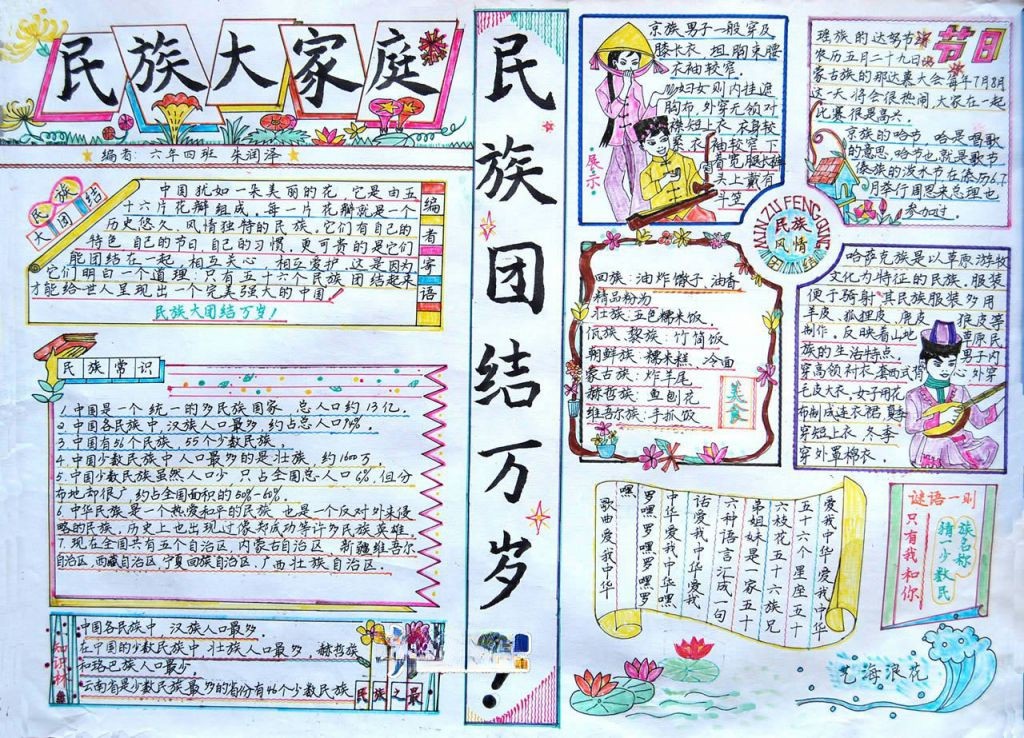 民族大家庭
编者：六年四班 朱润泽
民族大团结
中国犹如一朵美丽的花，它是由五
十六片花瓣组成，每一片花瓣就是一个
历史悠久，风情独特的民族，它们有自己的
特色，自己的节日，自己的习惯，更可贵的是它们
能团结在一起，相互关心，相互爱护，这是因为
它们明白一个道理：只有五十六个民族团结起来
才能给世人呈现出一个完美强大的中国！
民族大团结万岁！
编者寄语
民族常识
1.中国是一个统一的多民族国家，总人口约13亿。
2.中国各民族中，汉族人口最多，约占总人口94%。
3.中国有56个民族，55个少数民族。
4.中国少数民族中人口最多的是壮族，约1600万。
5.中国少数民族虽然人口少，只占全国总人口6%，但分
布地却很广，约占全国面积的50%-60%。
6.中华民族是一个热爱和平的民族，也是一个反对外来侵
略的民族，历史上也出现过像郑成功等许多民族英雄。
7.现在全国共有五个自治区，内蒙古自治区、新疆维吾尔
自治区，西藏自治区，宁夏回族自治区，广西壮族自治区。
知识林
中国各民族中，汉族人口最多
在中国的少数民族中，壮族人口最多，赫哲族
和珞巴族人口最少。
云南省是少数民族最多的省份有46个少数民族
民族之最
民族团结万岁！
京族男子一般穿及
膝长衣，坦胸束腰
衣袖较窄。
妇女则内挂遮
胸布，外穿无领对
襟短上衣，衣身较
紧，衣袖较窄，下
着宽腿长裤
头上戴有
斗笠
展示
节日
瑶族的达努节
农历五月二十九日
蒙古族的那达慕大会每年7月8月
这一天将会很热闹，大家在一起
比赛很是高兴。
京族的哈节 哈是唱歌
的意思，哈节也就是歌节
傣族的泼水节在傣历6.7
月举行周恩来总理也
参加过。
MINZU FENGQING
民族
风情
团结
回族：油炸馓子 油香
精品粉为
壮族：五色糯米饭。
佤族、黎族：竹筒饭
朝鲜族：糯米糕、冷面
蒙古族：炸羊尾
赫哲族：鱼刨花
维吾尔族：手抓饭
美食
哈萨克族是以草原游牧
文化为特征的民族，服装
便于骑射，其民族服装多用
羊皮、狐狸皮、鹿皮、狼皮等
制作，反映着山地草原民
族的生活特点，男子内
穿高领衬衣，套西式背心，外穿
毛皮大衣，女子用花
布制成连衣裙，夏季
穿短上衣，冬季
穿外罩棉衣。
爱我中华爱我中华
五十六个星座五十
六枝花五十六族兄
弟姐妹是一家五十
六种语言汇成一句
话爱我中华爱我
中华爱我中华嘿
罗嘿罗嘿罗
嘿
歌曲爱我中华
谜语一则
族名称
猜一少数民
只有我和你
艺海浪花